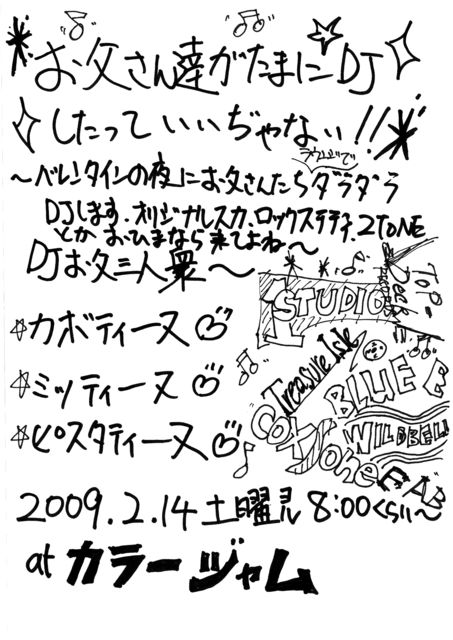 お父さん達がたまにDJ
したっていいぢゃない!!
ラウンジで
～バレンタインの夜にお父さんたちダラダラ
DJします。オリジナルスカ、ロックステディ、2TONE
とか おひまなら来てよね～
DJお父三人衆～
☆カボティーヌ
☆ミッティーヌ
☆ピスタティーヌ
STUDIO 1
TOP-
Deck
RECORDS
Treasure Isle
BLUE B
Coxsone
WILDBELL
FAB
2009.2.14土曜ヨル 8:00くらい～
at カラージャム